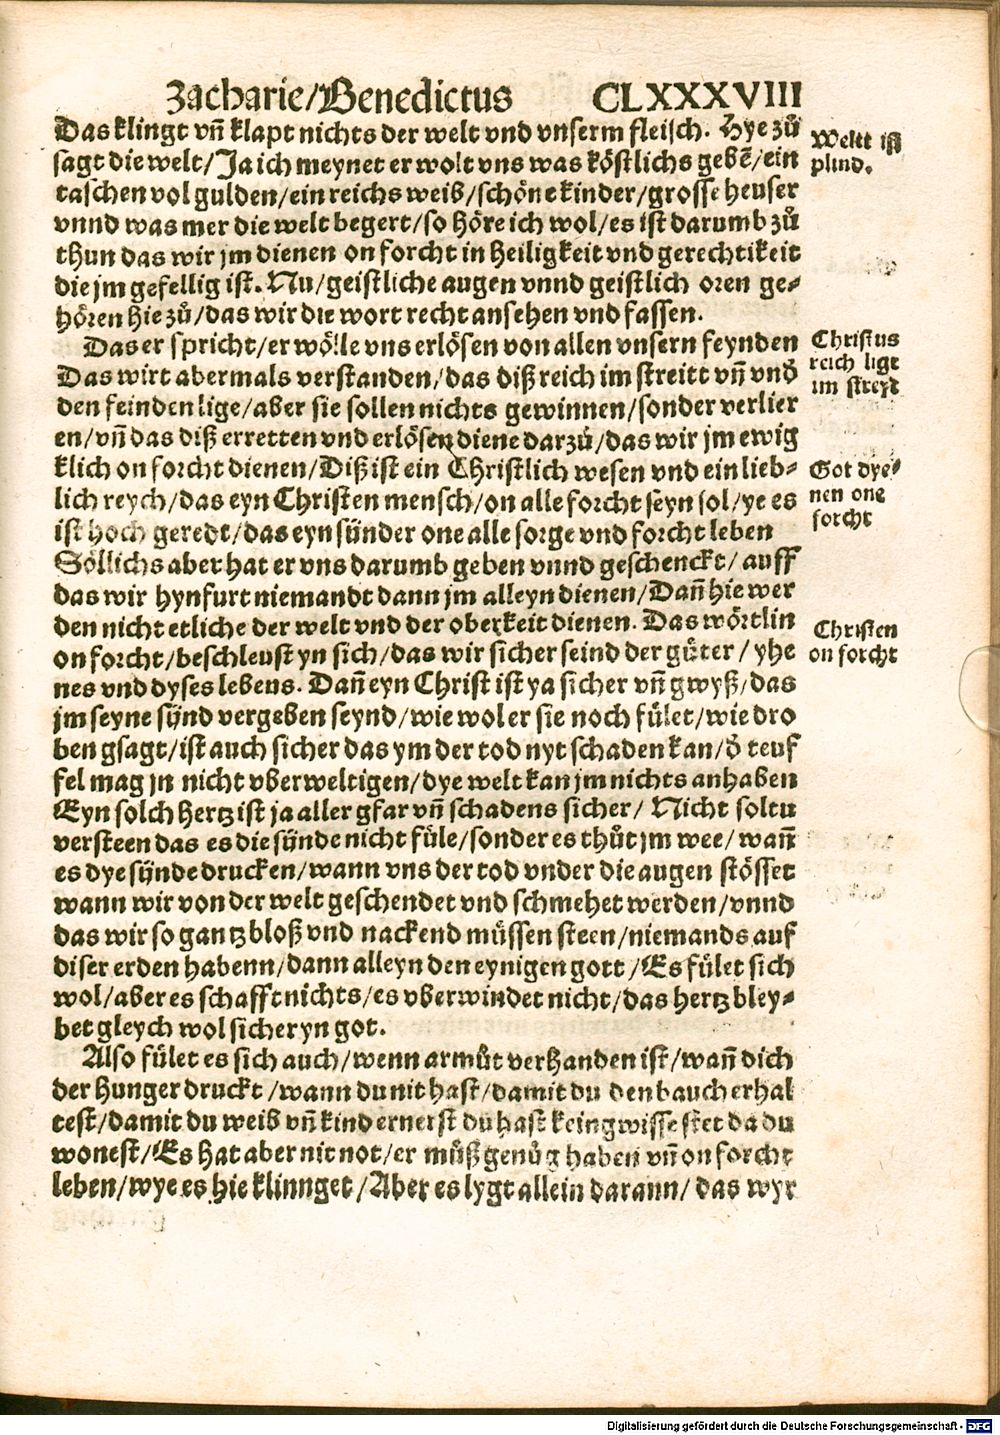 Zacharie/Benedictus CLXXXVIII
Das klingt vñ klapt nichts der welt vnd vnserm fleisch. Hye zů
sagt die welt/Ja ich meynet er wolt vns was köstlichs gebẽ/ein
taschen vol gulden/ein reichs weib/schöne kinder/grosse heuser
vnnd was mer die welt begert/so höre ich wol/es ist darumb zů
thun das wir jm dienen on forcht in heiligkeit vnd gerechtikeit
die jm gefellig ist. Nu/geistliche augen vnnd geistlich oren ge-
hören hie zů/das wir die wort recht ansehen vnd fassen.
Das er spricht/er wölle vns erlösen von allen vnsern feynden
Das wirt abermals verstanden/das diß reich im streitt vñ vnď
den feinden lige/aber sie sollen nichts gewinnen/sonder verlier
en/vñ das diß erretten vnd erlösen diene darzů/das wir jm ewig
klich on forcht dienen/Diß ist ein Christlich wesen vnd ein lieb-
lich reych/das eyn Christen mensch/on alle forcht seyn sol/ye es
ist hoch geredt/das eyn sünder one alle sorge vnd forcht leben
Söllichs aber hat er vns darumb geben vnnd geschenckt/auff
das wir hynfurt niemandt dann jm alleyn dienen/Dañ hie wer
den nicht etliche der welt vnd der oberkeit dienen. Das wörtlin
on forcht/beschleust yn sich/das wir sicher seind der güter/yhe
nes vnd dyses lebens. Dañ eyn Christ ist ya sicher vñ gwyß/das
jm seyne sünd vergeben seynd/wie wol er sie noch fület/wie dro
ben gsagt/ist auch sicher das ym der tod nyt schaden kan/ď teuf
fel mag jn nicht vberweltigen/dye welt kan jm nichts anhaben
Eyn solch hertz ist ja aller gfar vñ schadens sicher/Nicht soltu
versteen das es die sünde nicht füle/sonder es thůt jm wee/wañ
es dye sünde drucken/wann vns der tod vnder die augen stösset
wann wir von der welt geschendet vnd schmehet werden/vnnd
das wir so gantz bloß vnd nackend müssen steen/niemands auf
diser erden habenn/dann alleyn den eynigen gott/Es fület sich
wol/aber es schafft nichts/es vberwindet nicht/das hertz bley-
bet gleych wol sicher yn got.
Also fület es sich auch/wenn armůt verhanden ist/wañ dich
der hunger druckt/wann du nit hast/damit du den bauch erhal
test/damit du weib vñ kind ernerst du hast kein gwisse stet da du
wonest/Es hat aber nit not/er můß genůg haben vñ on forcht
leben/wye es hie klinnget/Aber es lygt allein darann/das wyr
Weltt ist
plind.
Christus
reich ligt
im streyt
Got dye-
nen one
forcht
Christen
on forcht
Digitalisierung gefördert durch die Deutsche Forschungsgemeinschaft - DFG